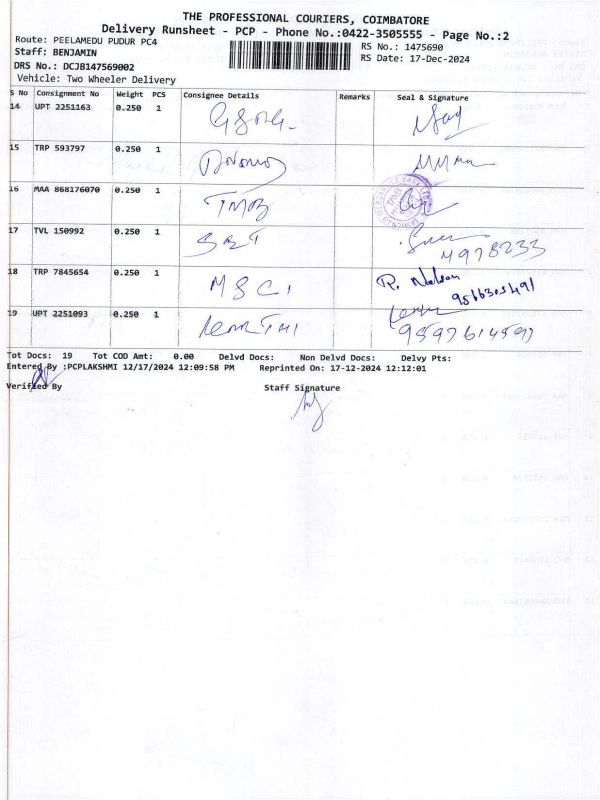 THE PROFESSIONAL COURIERS, COIMBATORE
Delivery Runsheet - PCP - Phone No.:0422-3505555 - Page No.:2
Route: PEELAMEDU PUDUR PC4
RS No.: 1475690
Staff: BENJAMIN
RS Date: 17-Dec-2024
DRS No.: DCJB147569002
Vehicle: Two Wheeler Delivery
S No Consignment No Weight PCS Consignee Details Remarks Seal & Signature
14 UPT 2251163 0.250 1
15 TRP 593797 0.250 1
16 MAA 868176070 0.250 1 TMB
17 TVL 150992 0.250 1 SBT
4978233
18 TRP 7845654 0.250 1 MSCI R. Nelson
9566305491
19 UPT 2251093 0.250 1
9597614597
Tot Docs: 19 Tot COD Amt: 0.00 Delvd Docs: Non Delvd Docs: Delvy Pts:
Entered By :PCPLAKSHMI 12/17/2024 12:09:58 PM Reprinted On: 17-12-2024 12:12:01
Verified By Staff Signature